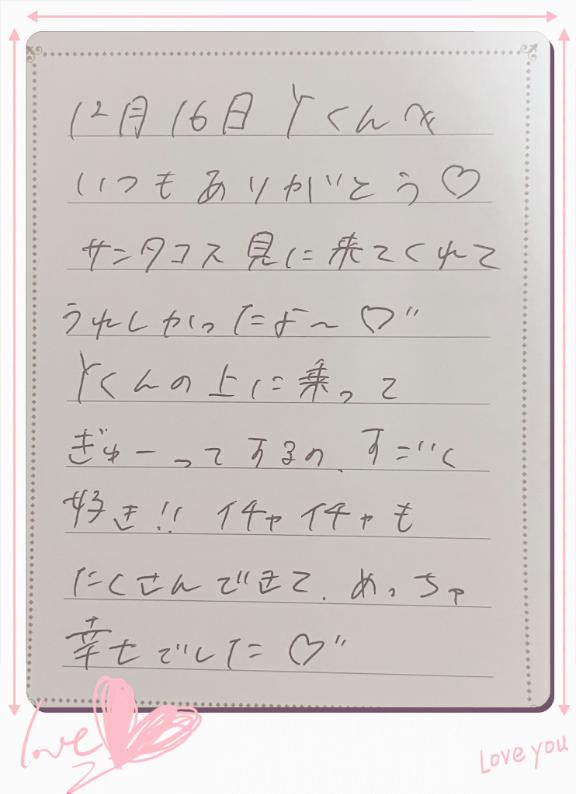 12月16日 Yくんへ
いつもありがとう♡
サンタコス見に来てくれて
うれしかったよ〜♡"
Yくんの上に乗って
ぎゅーってするの、すごく
好き!! イチャイチャも
たくさんできて、めっちゃ
幸せでした♡"
love
Love you